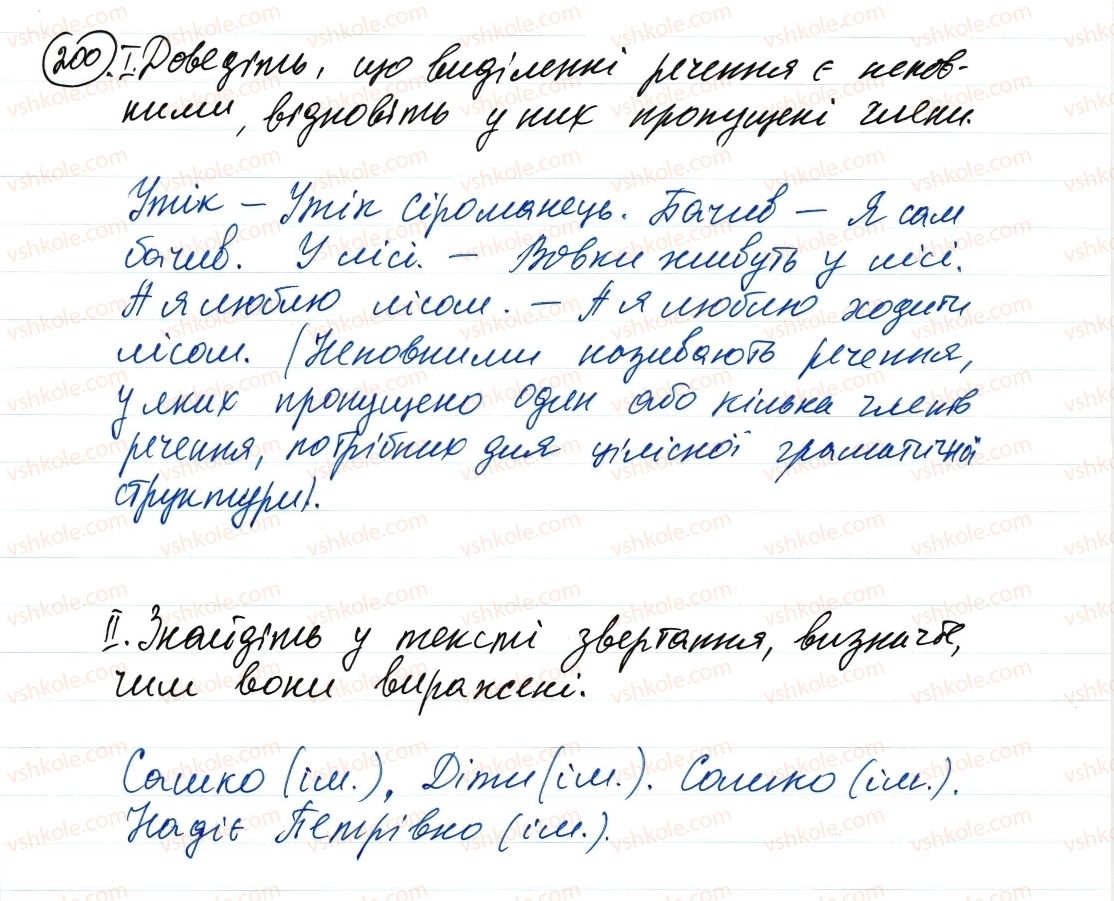 200. I. Доведіть, що виділенні речення є непов-
ними, відновіть у них пропущені члени.
Утік – Утік Сіроманець. Бачив – Я сам
бачив. У лісі. – Вовки живуть у лісі.
А я люблю лісом. – А я люблю ходити
лісом. (Неповними називають речення,
у яких пропущено один або кілька членів
речення, потрібних для цілісної граматичної
структури).
II. Знайдіть у тексті звертання, визначте,
чим вони виражені.
Сашко (ім.), Діти (ім.). Сашко (ім.).
Надіє Петрівно (ім.).